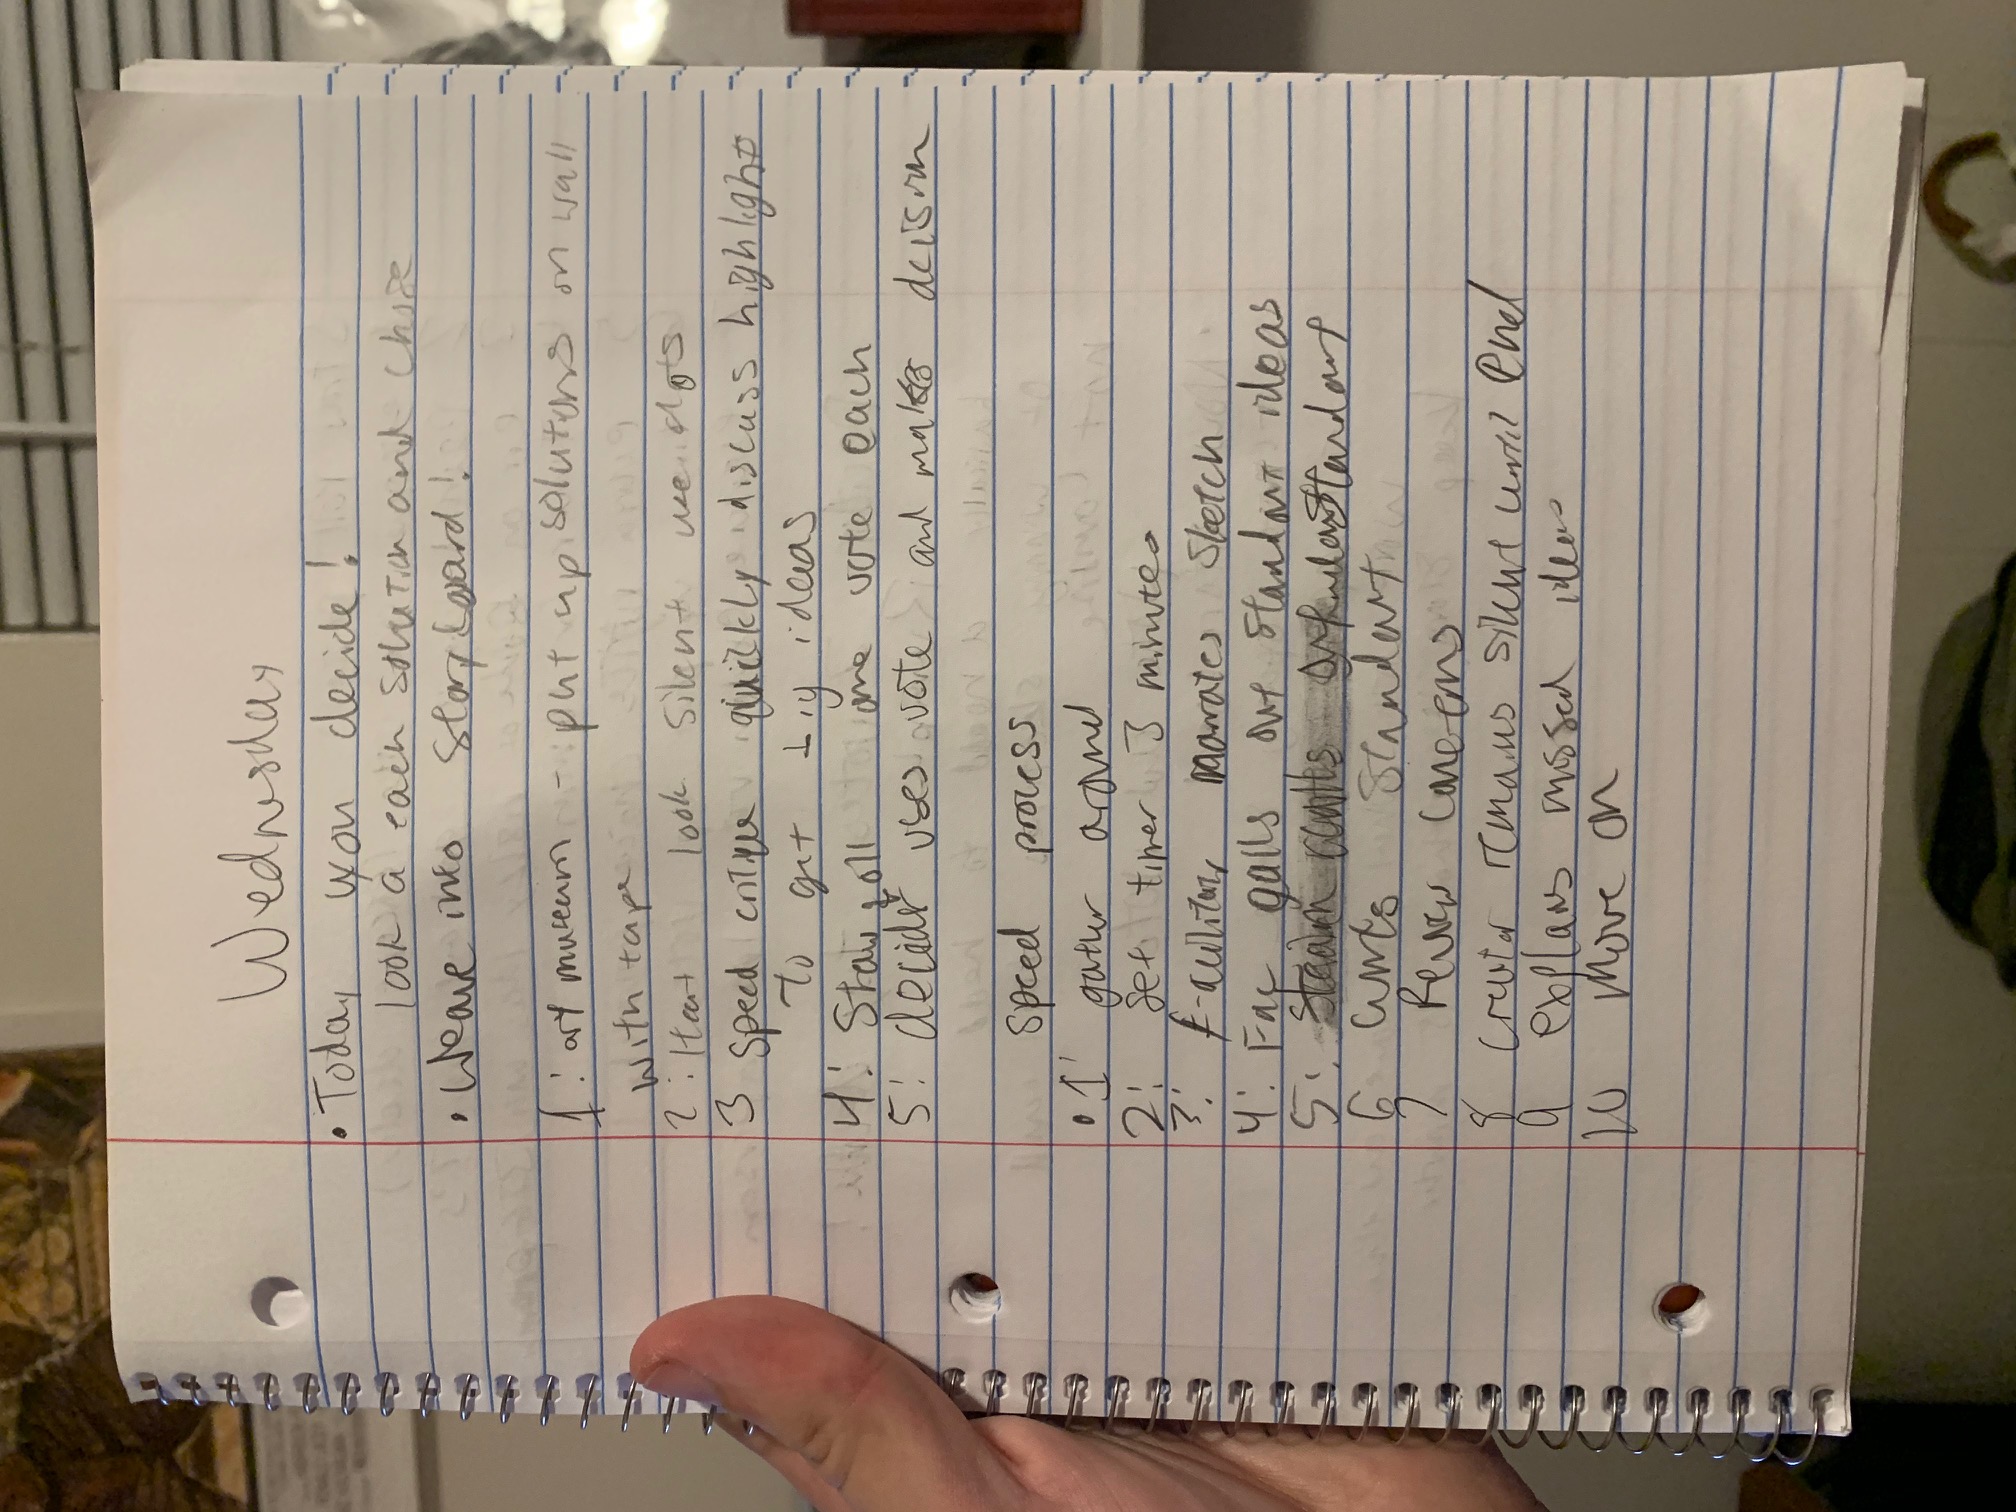 Wednesday
• Today you decide!
look a each solution and chose
• Weave into Storyboard!
1: art museum - put up solutions on wall
with tape
2: Heat look silent use dots
3 Speed critique quickly discuss highlights
To get big ideas
4: Straw poll one vote each
5: decider uses vote and makes decision
Speed process
• 1' gather around
2: set timer 3 minutes
3: Facilitator narrates sketch
4: Fac calls out standout ideas
5: standout
6 standout
7 Review concerns
8 creator remains silent until end
9 explans missed ideas
10 move on